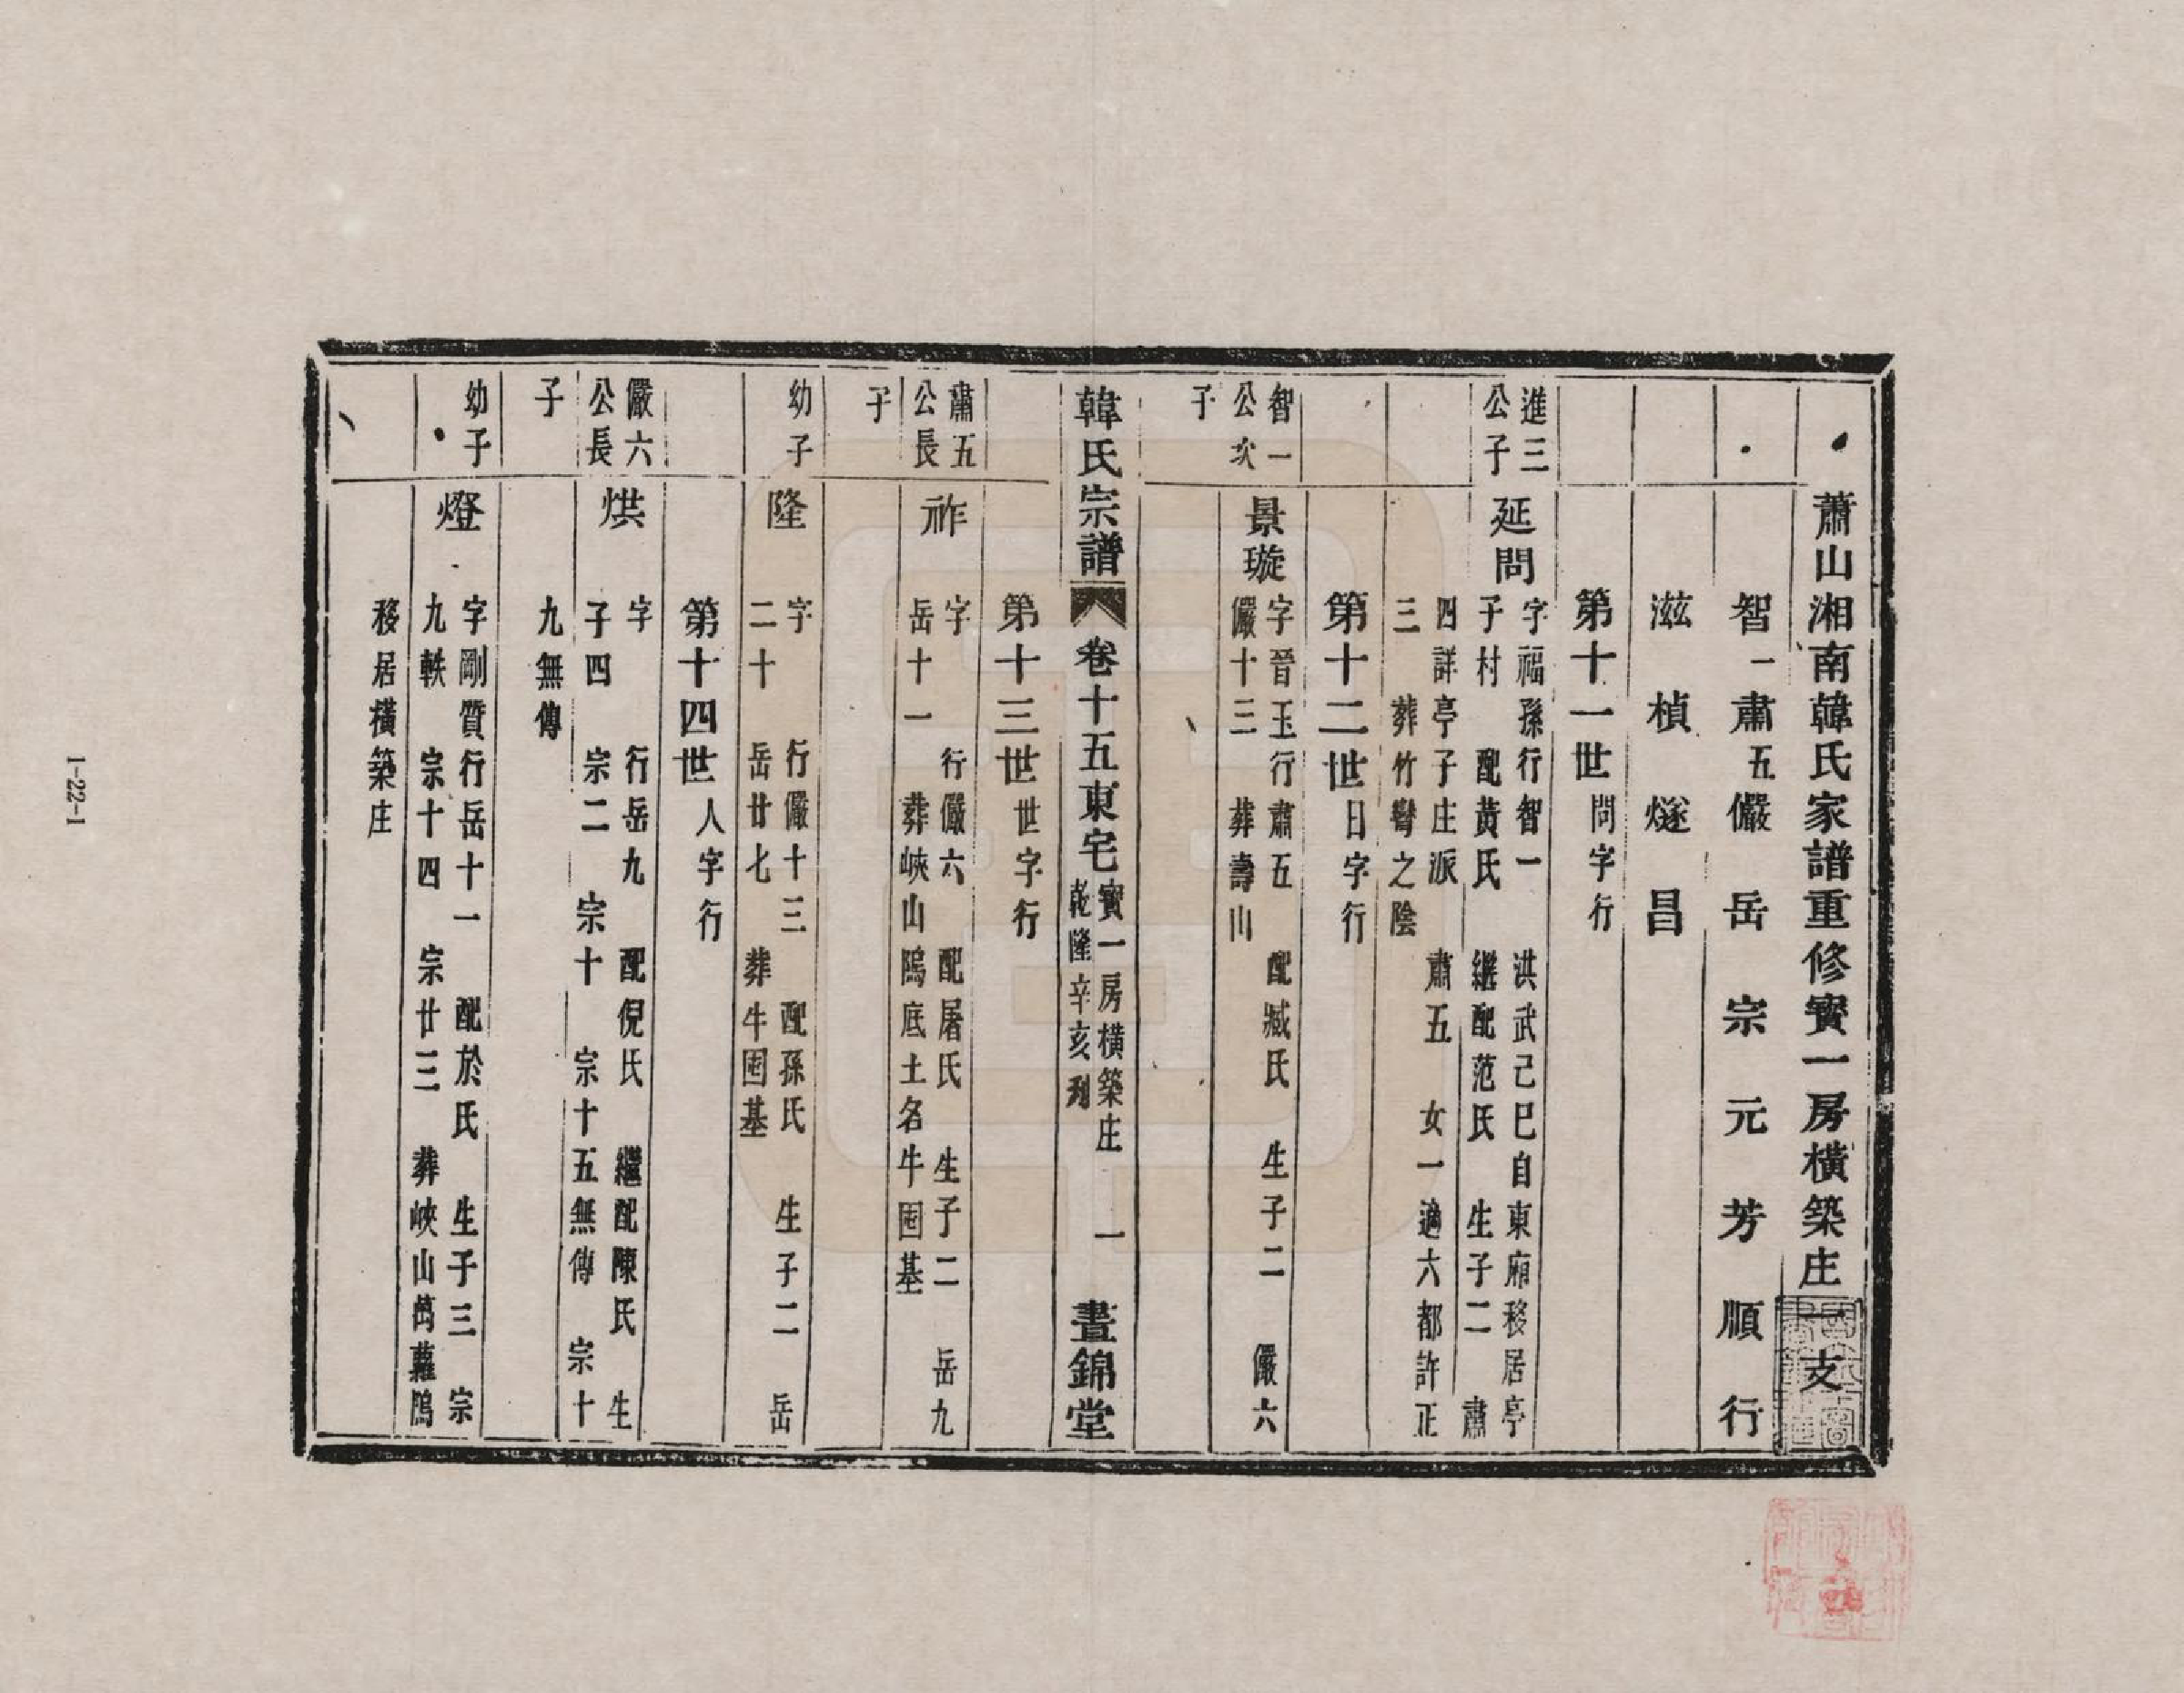 蕭山湘南韓氏家譜重修實一房橫築庄支
智一肅五儼岳宗元芳順行
滋楨燧昌
第十一世問字行
進三
公子
延問
字福孫行智一 洪武己巳自東廂移居亭
子村 配黃氏 繼配范氏 生子二 肅
四詳亭子庄派 肅五 女一適六都許正
三 葬竹彎之陰
第十二世日字行
智一
公次
子
景璇
字晉玉行肅五 配臧氏 生子二 儼六
儼十三 葬壽山
韓氏宗譜 卷十五東宅 實一房橫築庄 乾隆辛亥刋 一 晝錦堂
第十三世世字行
肅五
公長
子
祚
字 行儼六 配屠氏 生子二 岳九
岳十一 葬峽山隖底土名牛囤基
幼子
隆
字 行儼十三 配孫氏 生子二 岳
二十 岳廿七 葬牛囤基
第十四世人字行
儼六
公長
子
烘
字 行岳九 配倪氏 繼配陳氏 生
子四 宗二 宗十 宗十五無傳 宗十
九無傳
幼子
燈
字剛質行岳十一 配於氏 生子三 宗
九軼 宗十四 宗廿三 葬峽山蒿蘿隖
移居橫築庄
1-22-1